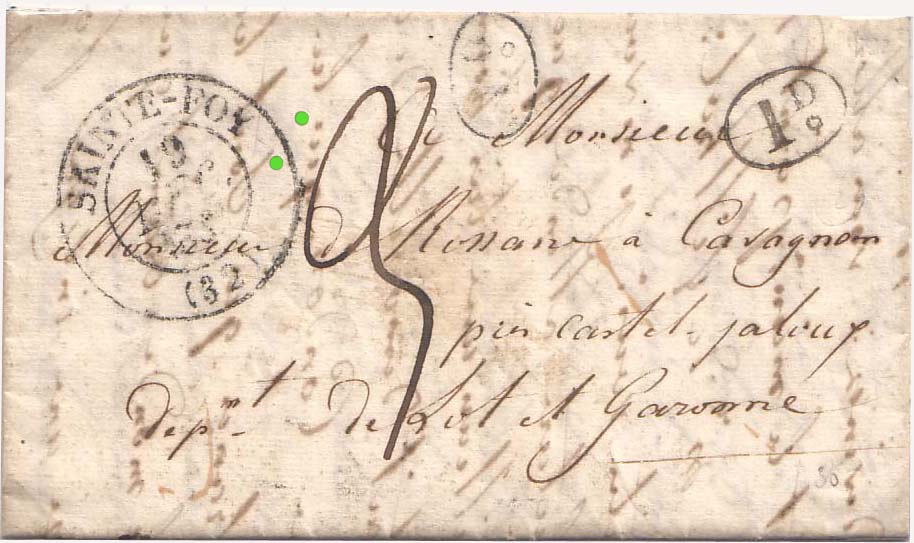 SAINTE-FOY
19
(32)
1 D
o
A Monsieur
Monsieur de Rossane à Casagnon
près castel-jaloux
depmt de Lot et Garonne
30